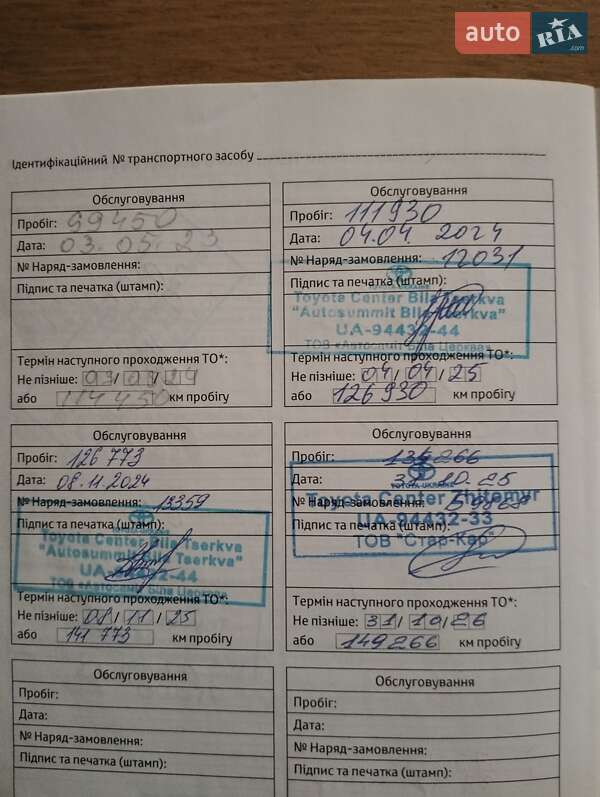 auto RIA.com
Ідентифікаційний № транспортного засобу
Обслуговування
Пробіг: 99450
Дата: 03.05.23
№ Наряд-замовлення:
Підпис та печатка (штамп):
Термін наступного проходження ТО*:
Не пізніше: 03/05/24
або 114450 км пробігу
Обслуговування
Пробіг: 111930
Дата: 04.04. 2024
№ Наряд-замовлення: 12031
Підпис та печатка (штамп):
Toyota Center Bila Tserkva
"Autosummit Bila Tserkva"
UA-94432-44
ТОВ «Автосаміт Біла Церква»
Термін наступного проходження ТО*:
Не пізніше: 04/04/25
або 126930 км пробігу
Обслуговування
Пробіг: 126 773
Дата: 08.11.2024
№ Наряд-замовлення: 13359
Підпис та печатка (штамп):
Toyota Center Bila Tserkva
"Autosummit Bila Tserkva"
UA-94432-44
ТОВ «Автосаміт Біла Церква»
Термін наступного проходження ТО*:
Не пізніше: 08/11/25
або 141 773 км пробігу
Обслуговування
Пробіг: 134266
Дата: 31.10.25
№ Наряд-замовлення:
Підпис та печатка (штамп):
TOYOTA-UKRAINE
Toyota Center Zhitomyr
UA-94432-33
ТОВ "Стар-Кар"
Термін наступного проходження ТО*:
Не пізніше: 31/10/26
або 149266 км пробігу
Обслуговування
Пробіг:
Дата:
№ Наряд-замовлення:
Підпис та печатка (штамп):
Обслуговування
Пробіг:
Дата:
№ Наряд-замовлення:
Підпис та печатка (штамп):